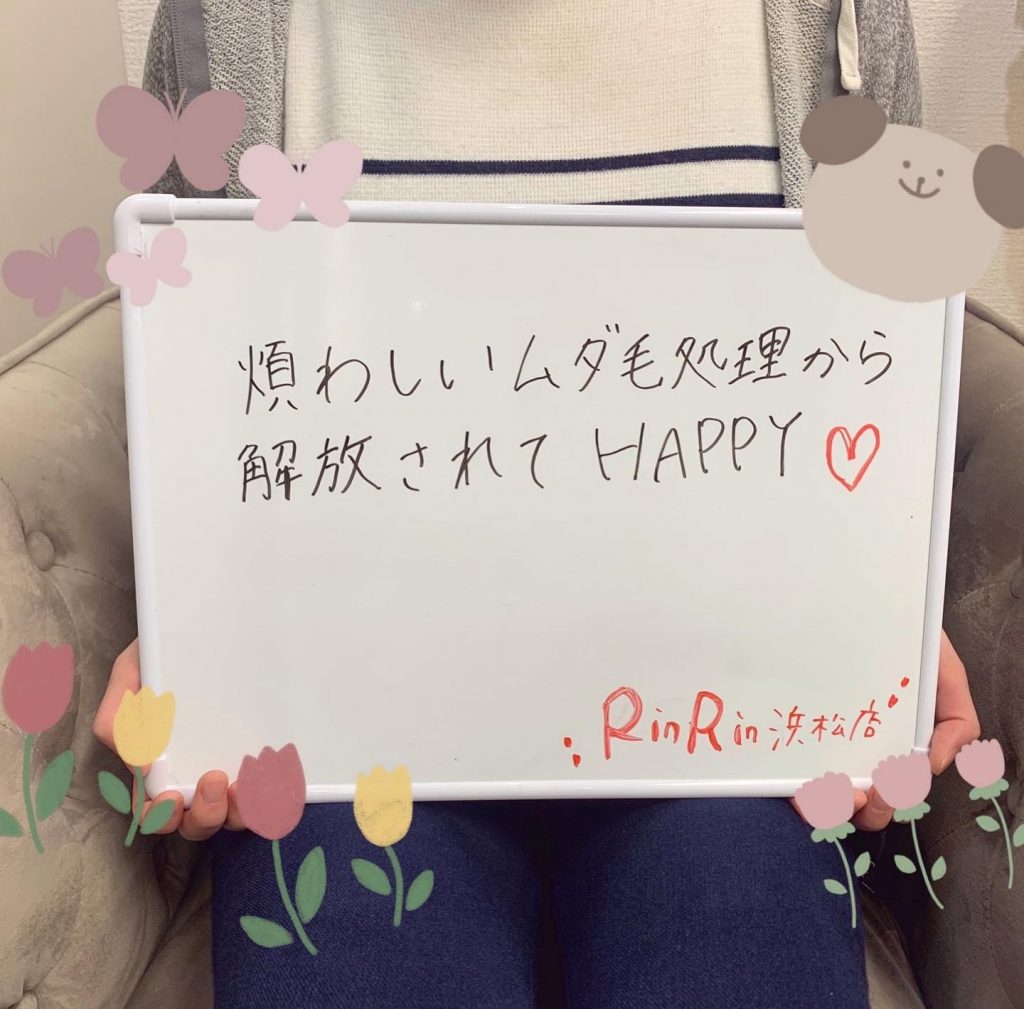 煩わしいムダ毛処理から
解放されて HAPPY♡
RinRin 浜松店